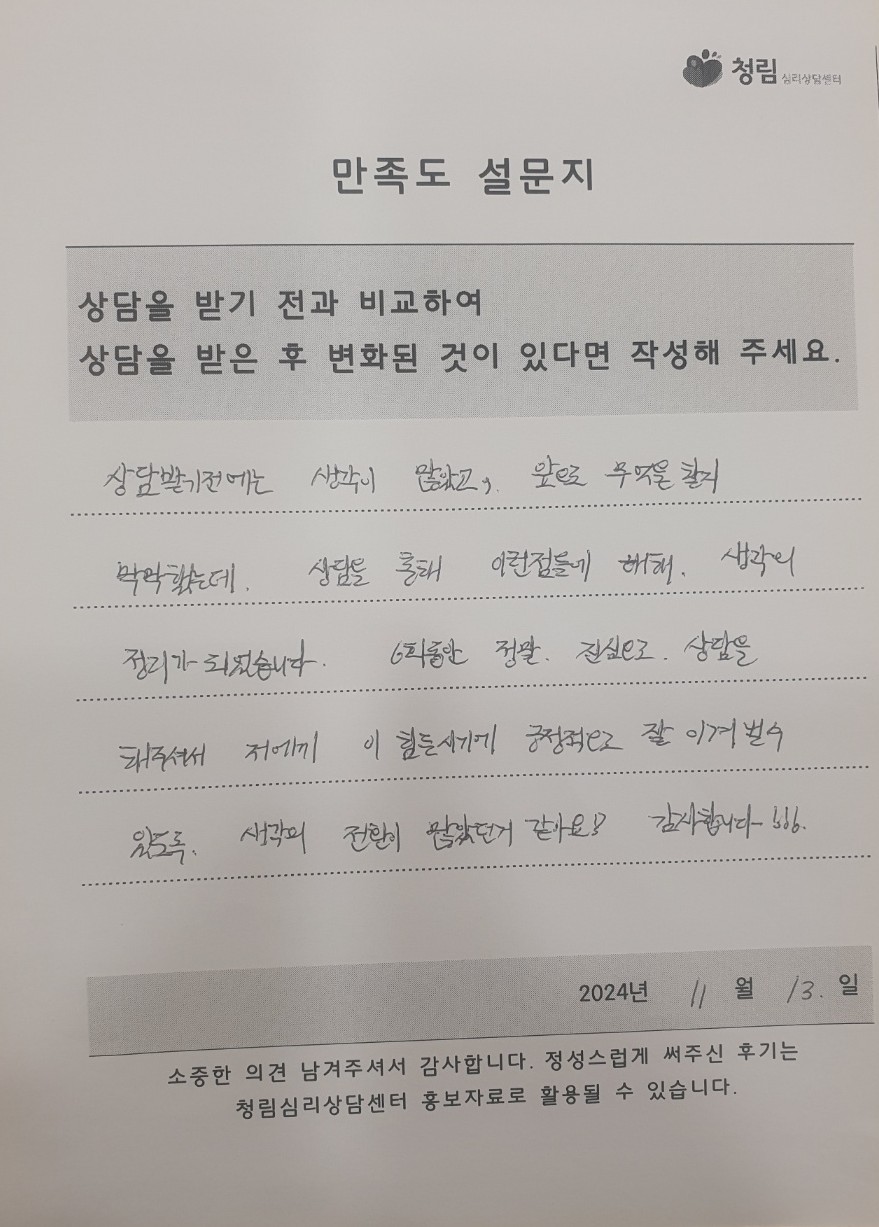 청림 심리상담센터
만족도 설문지
상담을 받기 전과 비교하여
상담을 받은 후 변화된 것이 있다면 작성해 주세요.
상담받기전에는 생각이 많았고, 앞으로 무엇을 할지
막막했는데. 상담을 통해 이런점들에 대해. 생각의
정리가 되었습니다. 6회동안 정말. 진심으로. 상담을
해주셔서 저에게 이 힘든시기에 긍정적으로 잘 이겨낼수
있도록. 생각의 전환이 많았던거 같아요!! 감사합니다~ !!!.
2024년 11 월 13. 일
소중한 의견 남겨주셔서 감사합니다. 정성스럽게 써주신 후기는
청림심리상담센터 홍보자료로 활용될 수 있습니다.